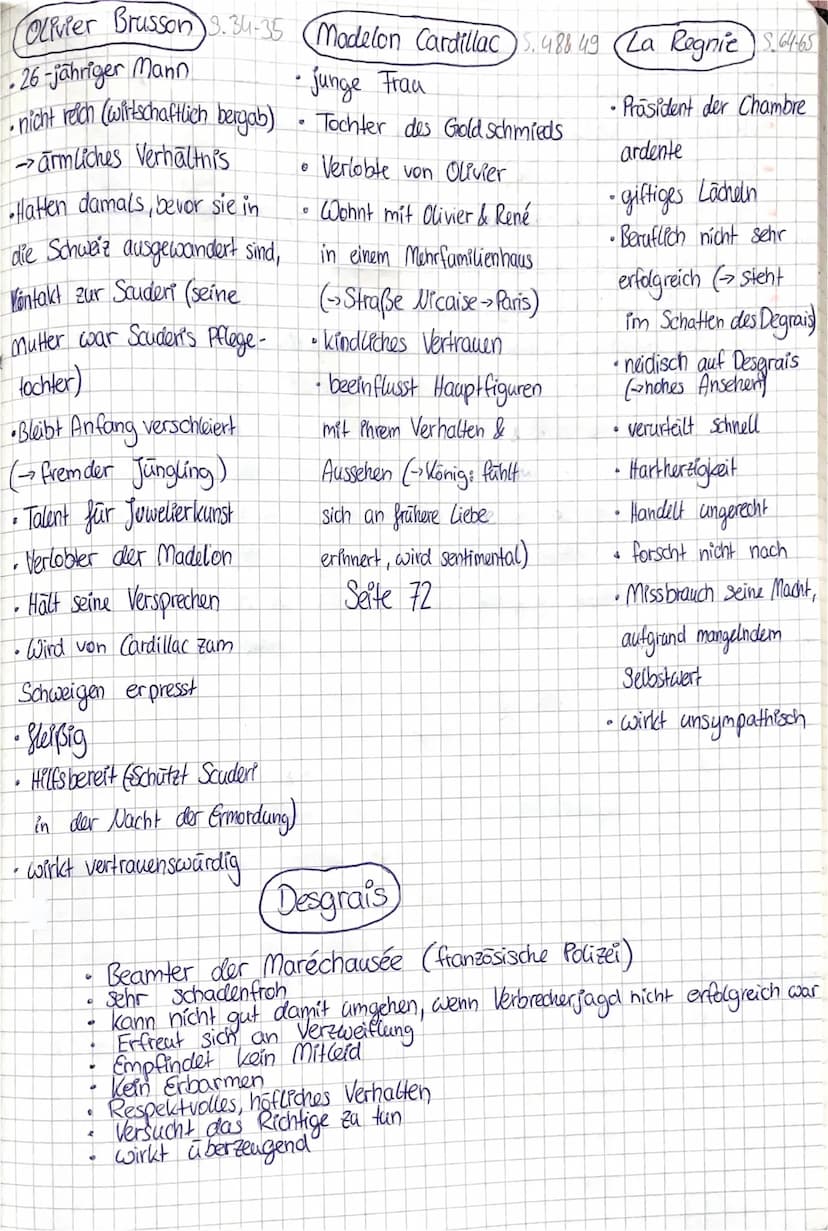 Olivier Brusson S. 34-35
• 26-jähriger Mann
• nicht reich (wirtschaftlich bergab)
→ ärmliches Verhältnis
• Hatten damals, bevor sie in
die Schweiz ausgewandert sind,
Kontakt zur Scuderi (seine
Mutter war Scuderis Pflege-
tochter)
• Bleibt Anfang verschleiert
(→ fremder Jüngling)
• Talent für Juwelierkunst
• Verlobter der Madelon
• Hält seine Versprechen
• Wird von Cardillac zum
Schweigen erpresst
• fleißig
• Hilfsbereit (Schützt Scuderi
in der Nacht der Ermordung)
• wirkt vertrauenswürdig
Madelon Cardillac S. 48 49
• junge Frau
• Tochter des Goldschmieds
• Verlobte von Olivier
• Wohnt mit Olivier & René
in einem Mehrfamilienhaus
(→ Straße Nicaise → Paris)
• kindliches Vertrauen
• beeinflusst Hauptfiguren
mit ihrem Verhalten &
Aussehen (→ König: fühlt
sich an frühere Liebe
erinnert, wird sentimental)
Seite 72
La Regnie S. 64-65
• Präsident der Chambre
ardente
• giftiges Lächeln
• Beruflich nicht sehr
erfolgreich (→ steht
im Schatten des Degrais)
• neidisch auf Desgrais
(→ hohes Ansehen)
• verurteilt schnell
• Hartherzigkeit
• Handelt ungerecht
• forscht nicht nach
• Missbrauch seine Macht,
aufgrund mangelndem
Selbstwert
• wirkt unsympathisch
Desgrais
• Beamter der Maréchausée (französische Polizei)
• sehr schadenfroh
• kann nicht gut damit umgehen, wenn Verbrecherjagd nicht erfolgreich war
• Erfreut sich an Verzweiflung
• Empfindet kein Mitleid
• Kein Erbarmen
• Respektvolles, höfliches Verhalten
• Versucht das Richtige zu tun
• wirkt überzeugend